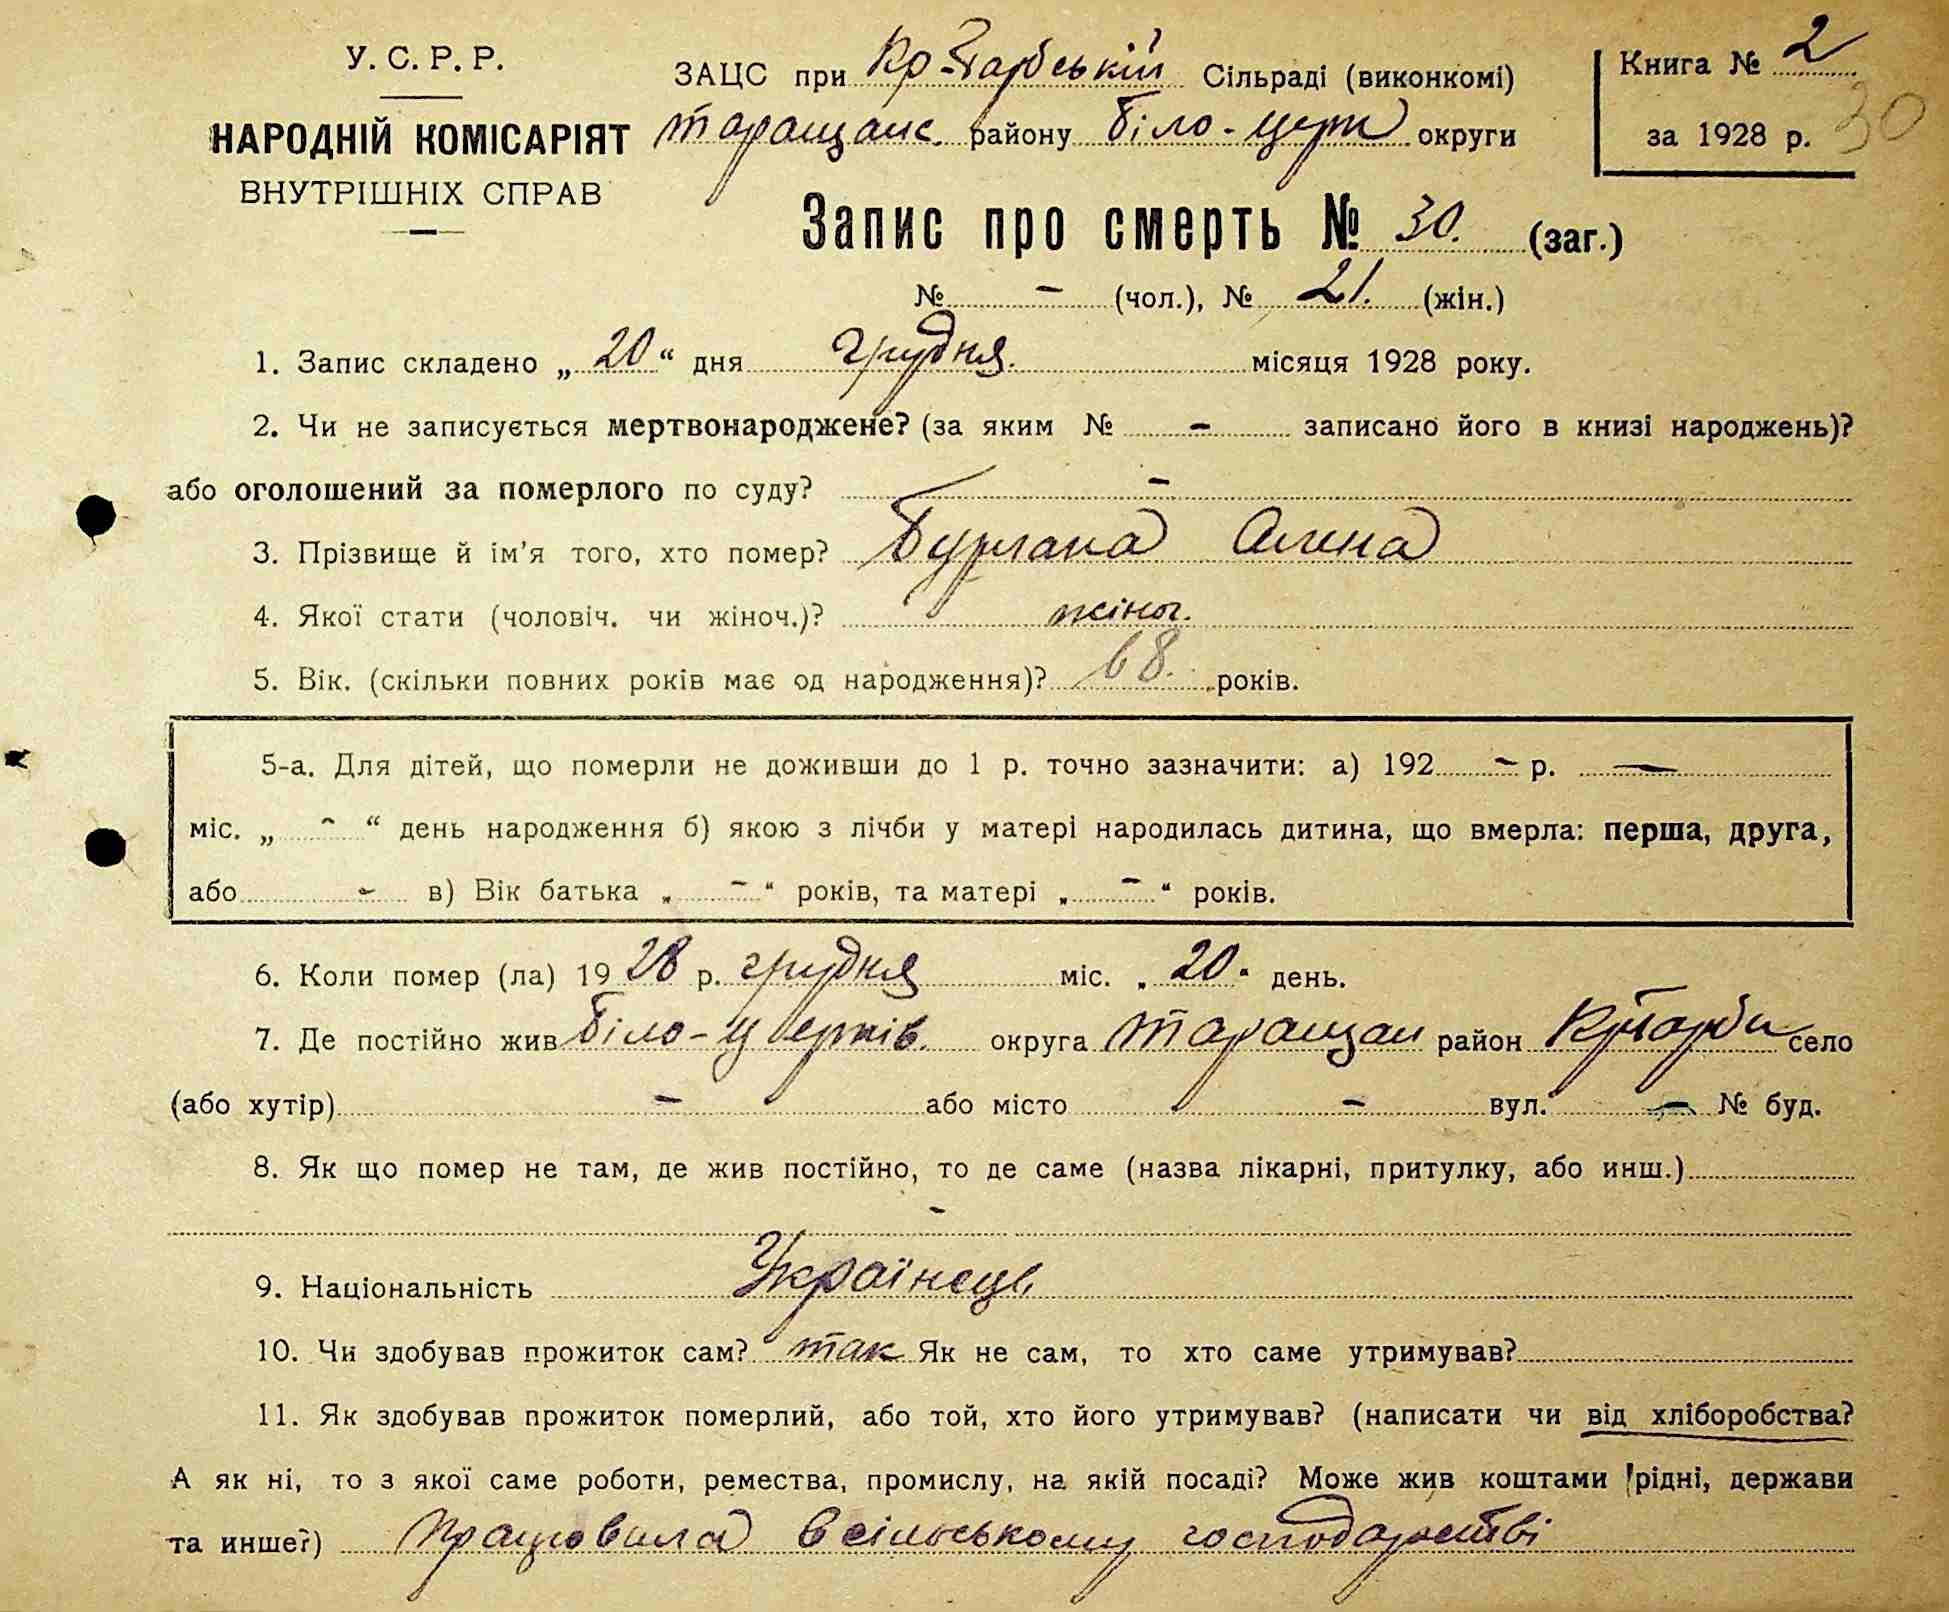 У. С. Р. Р.
НАРОДНІЙ КОМІСАРІЯТ
ВНУТРІШНІХ СПРАВ
ЗАЦС при Кр-Гарбській Сільраді (виконкомі)
таращанс. району Біло-церк округи
Книга № 2
за 1928 р. 30
Запис про смерть № 30. (заг.)
№ - (чол.), № 21. (жін.)
1. Запис складено „ 20 “ дня грудня. місяця 1928 року.
2. Чи не записується мертвонароджене? (за яким № - записано його в книзі народжень)?
або оголошений за померлого по суду? -
3. Прізвище й ім'я того, хто помер? Бурлака Олена
4. Якої стати (чоловіч. чи жіноч.)? жіноч.
5. Вік. (скільки повних років має од народження)? 68. років.
5-а. Для дітей, що померли не доживши до 1 р. точно зазначити: а) 192 - р. -
міс. „ - “ день народження б) якою з лічби у матері народилась дитина, що вмерла: перша, друга,
або - в) Вік батька „ - “ років, та матері „ - “ років.
6. Коли помер (ла) 1928 р. грудня міс. „ 20 “ день.
7. Де постійно жив Біло-церків. округа Таращан район село
(або хутір) - або місто - вул. - № буд.
8. Як що помер не там, де жив постійно, то де саме (назва лікарні, притулку, або инш.)
-
9. Національність Українець
10. Чи здобував прожиток сам? так Як не сам, то хто саме утримував?
11. Як здобував прожиток померлий, або той, хто його утримував? (написати чи від хліборобства?
А як ні, то з якої саме роботи, ремества, промислу, на якій посаді? Може жив коштами рідні, держави
та инше?) Працювала в сільському господарстві